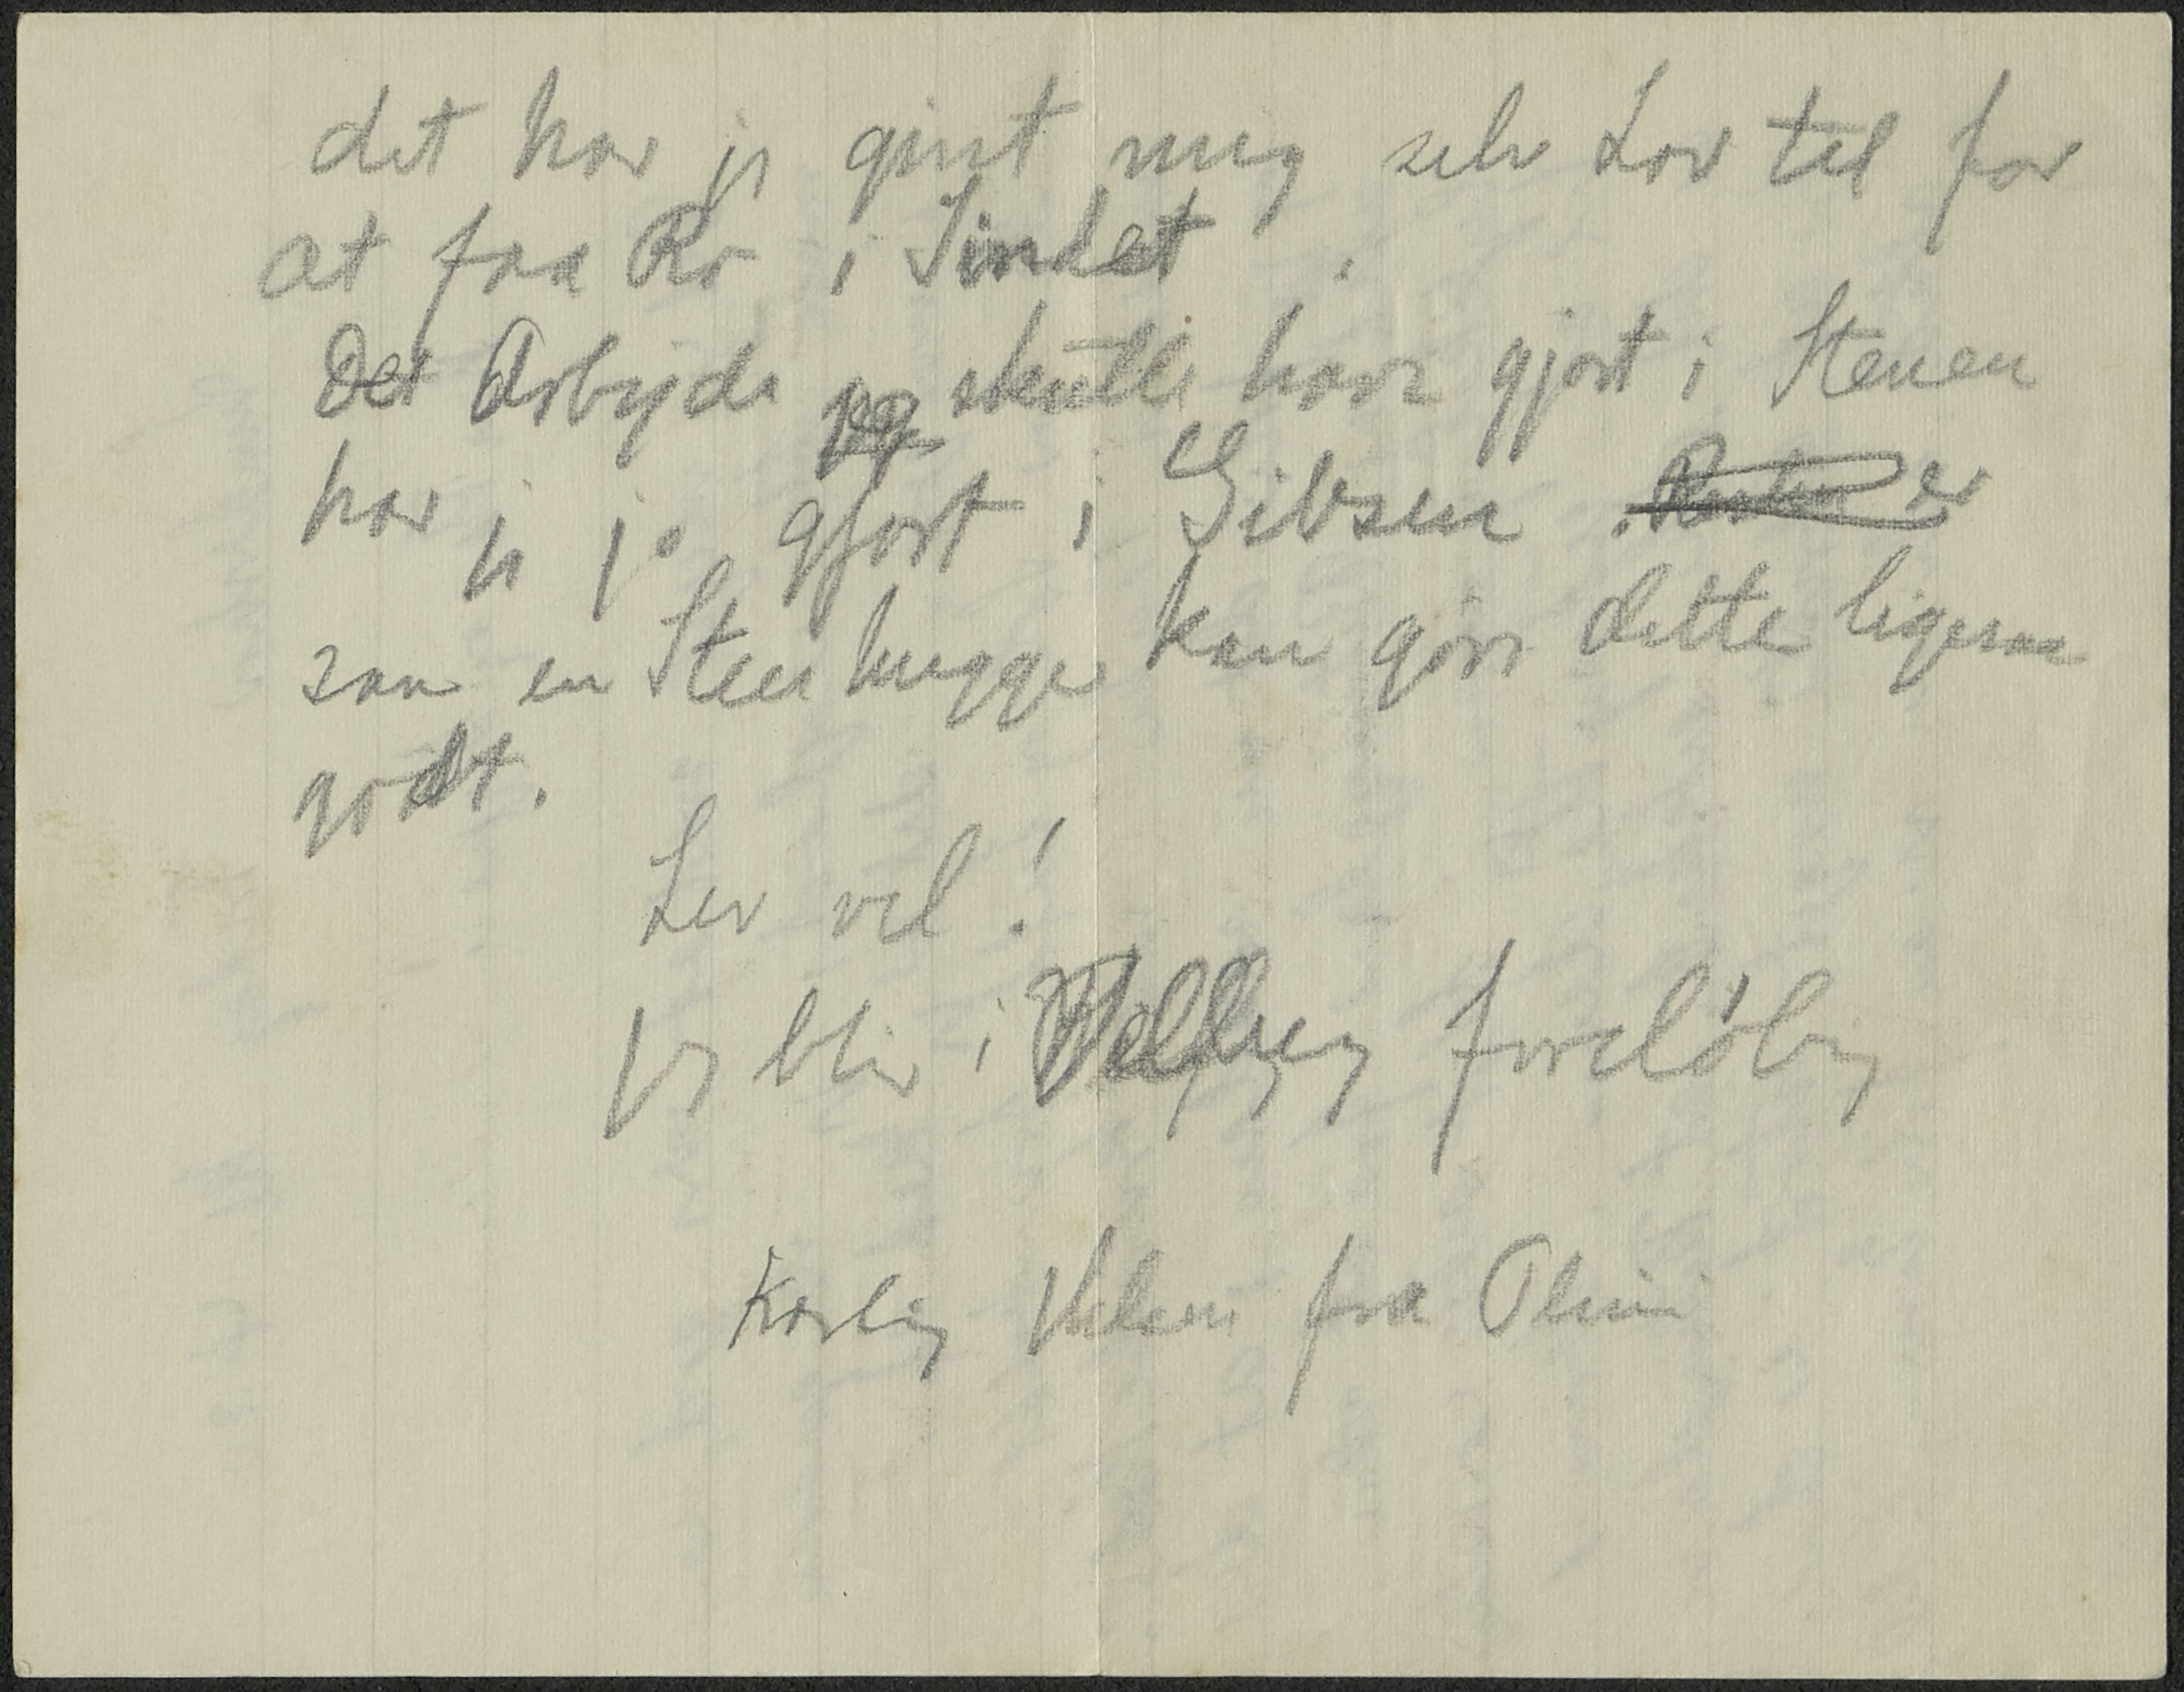 det har jeg givet mig selv Lov til for
at faa Ro i Sindet.
Det Arbejde jeg skulle have gjort i Stenen
har jeg jo gjort i Gibsen
saa en Stenhugger kan gøre dette ligesaa
godt.
Lev vel!
Jeg bliver i foreløbig
Kærlig Hilsen fra